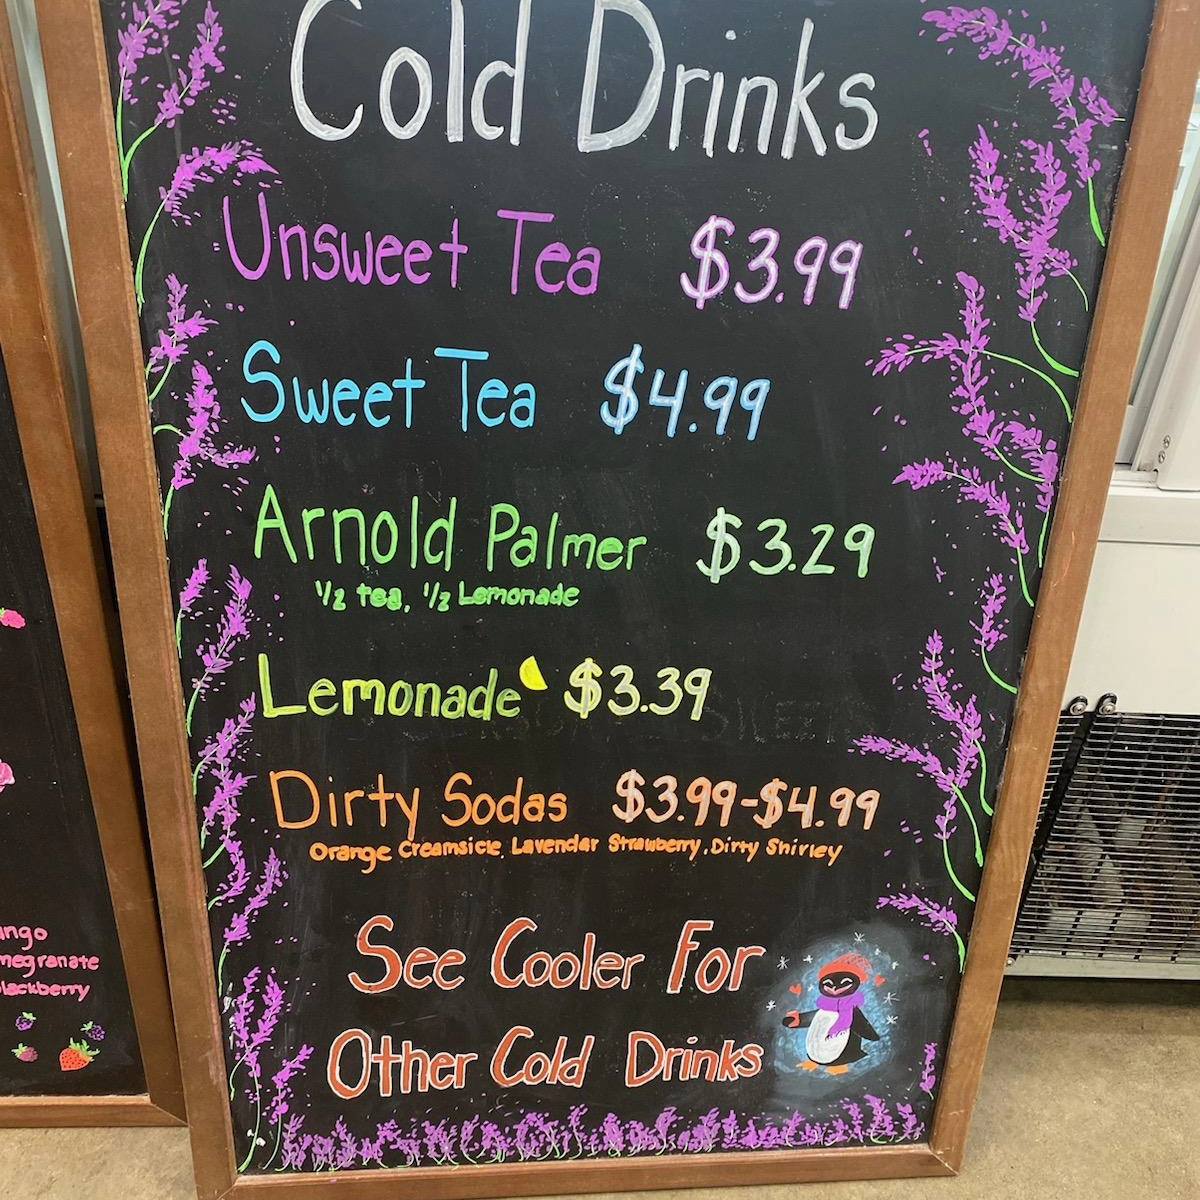 Cold Drinks
Unsweet Tea $3.99
Sweet Tea $4.99
Arnold Palmer $3.29
1/2 tea, 1/2 Lemonade
Lemonade $3.39
Dirty Sodas $3.99-$4.99
Orange Creamsicle, Lavendar Strawberry, Dirty Shirley
See Cooler For
Other Cold Drinks
ango
megranate
lackberry